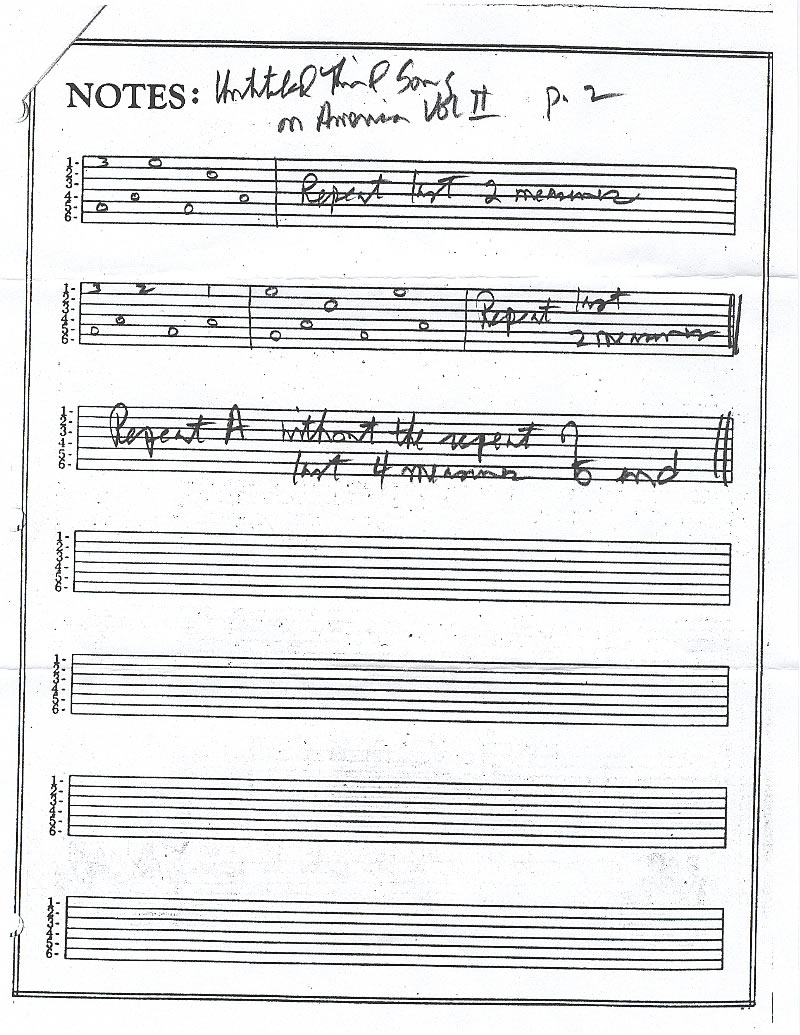 NOTES: Untitled Third Song
on America Vol II p. 2
1- 3 0
2- 0
3-
4- 0 0
5- 0 0
6-
Repeat last 2 measures
1- 3 2 1 0 0
2-
3- 0
4- 0 0 0 0
5- 0 0 0 0
6-
Repeat last
2 measures
1-
2-
3-
4-
5-
6-
Repeat A without the repeat
last 4 measures to end
1-
2-
3-
4-
5-
6-
1-
2-
3-
4-
5-
6-
1-
2-
3-
4-
5-
6-
1-
2-
3-
4-
5-
6-